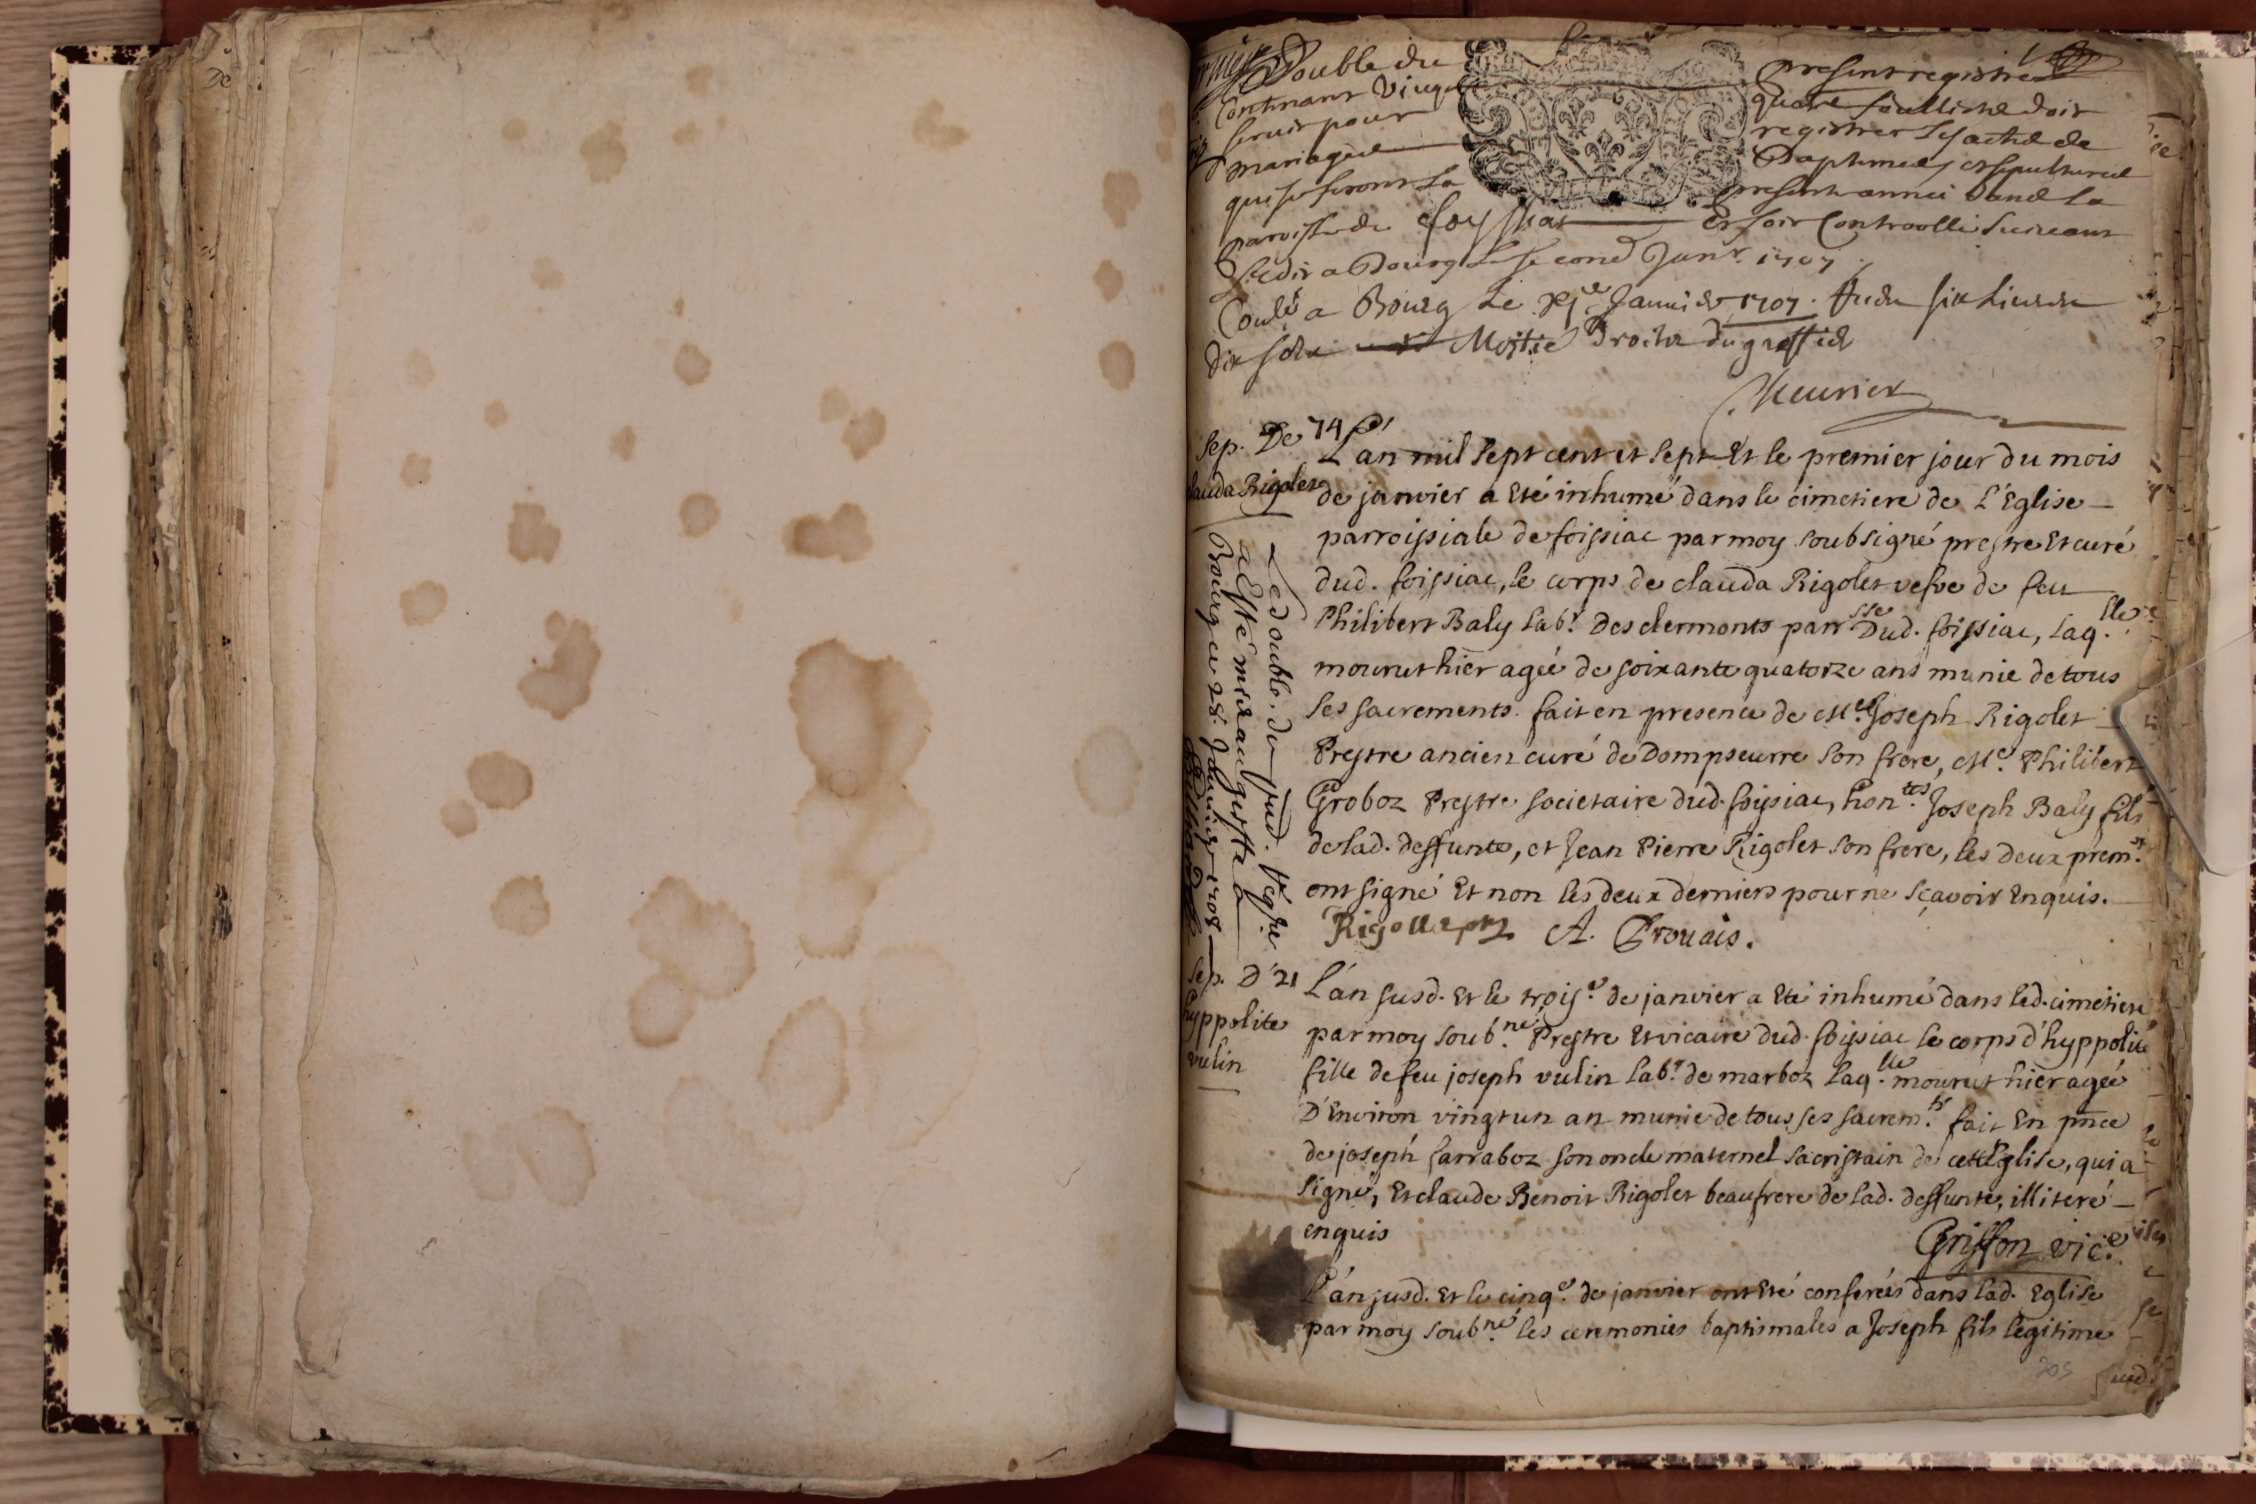 Double du present registre
Contenant Vingt quatre feuillets doit
servir pour registrer les actes de
mariages Baptemes et sepultures
qui se feront La presente année dans la
parroisse de foyssiat Et soit Controollé suivant
L'edit a Bourg Le second Janr. 1707
Contlé a Bourg Le xje Janvier 1707. Receu six livres
dix sols Moitié Droits du greffier
Meunier
Sep. De 74
clauda Rigolet
L'an mil sept cent et sept Et le premier jour du mois
de janvier a Eté inhumé dans le cimetiere de L'Eglise
parroissiale de foissiac par moy soubsigné prestre Et curé
dud. foissiac, le corps de clauda Rigolet vefve de feu
Philibert Baly labr. Des clermonts parrsse Dud. foissiac, laq.lle
mourut hier agée de soixante quatorze ans munie de tous
ses sacrements. fait en presence de Mre. Joseph Rigolet
Prestre ancien curé de Dompseurre son frere, Me. Philibert
Groboz Prestre societaire dud. foissiac, hon.tes Joseph Baly fils
de lad. deffunte, et Jean Pierre Rigolet son frere, les deux prem.rs
ont signé Et non les deux derniers pour ne sçavoir Enquis.
Rigollet ptre A. Provais.
Le double du pnd. Regre
a Esté mis au greffe a
Bourg ce 28. Janvier 1708
Sep. D' 21
hyppolite
vulin
L'an susd. Et le trois.e de janvier a Eté inhumé dans led. cimetiere
par moy soub.né Prestre Et vicaire dud. foissiac le corps d'hyppolite
fille de feu joseph vulin labr. de marboz laq.lle mourut hier agée
D'Environ vingt un an munie de tous ses sacrem.ts fait En pnce
de joseph farraboz son oncle maternel sacristain de cette Eglise, qui a
signé, Et claude Benoit Rigolet beaufrere de lad. deffunte, illiteré
enquis
Griffon vic.e
L'an susd. Et le cinq.e de janvier ont Eté conferés dans lad. Eglise
par moy soub.né les ceremonies baptismales a Joseph fils legitime